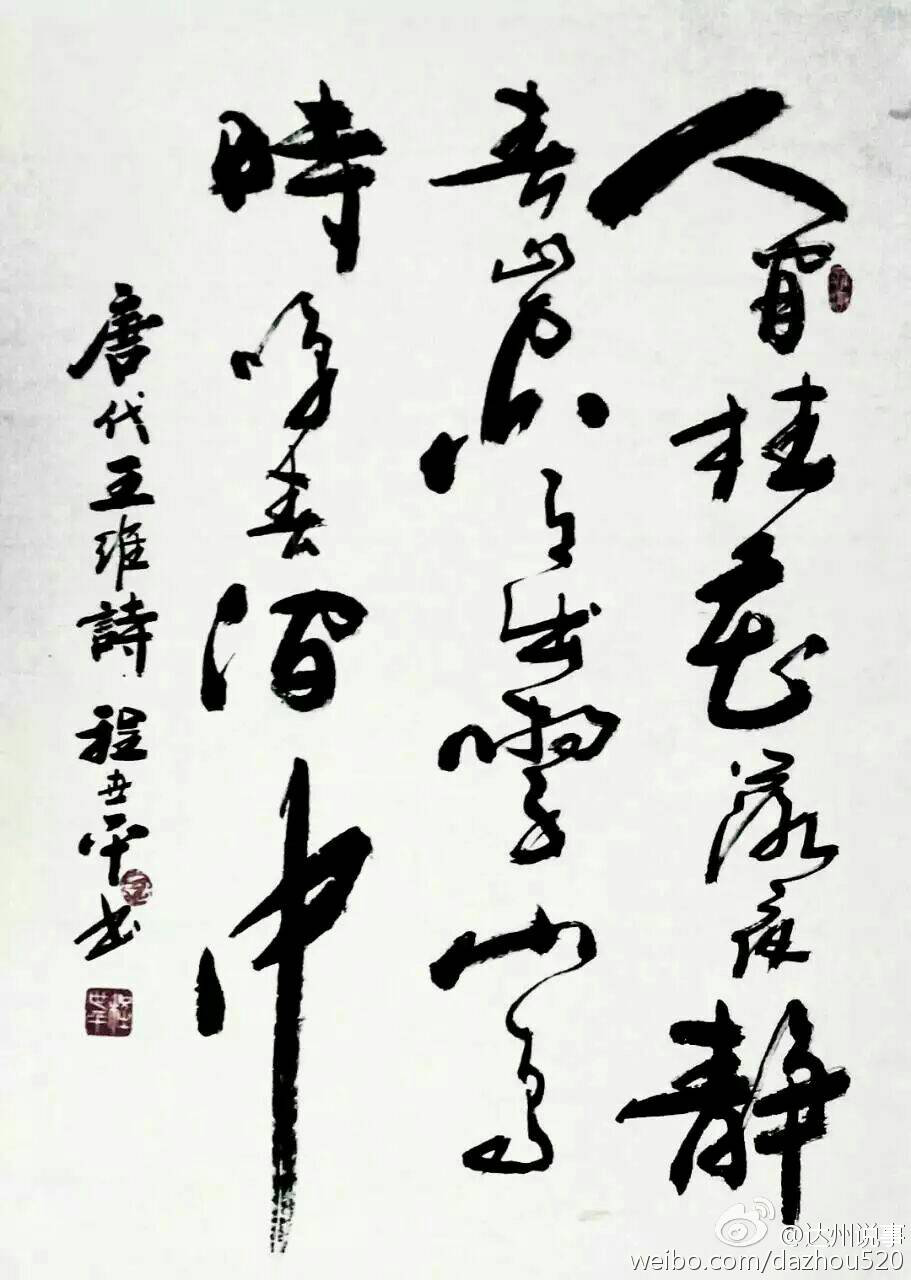 人閒桂花落夜靜
春山空月出驚山鳥
時鳴春澗中
唐代王維詩 程世平書
程世平
@达州说事
weibo.com/dazhou520